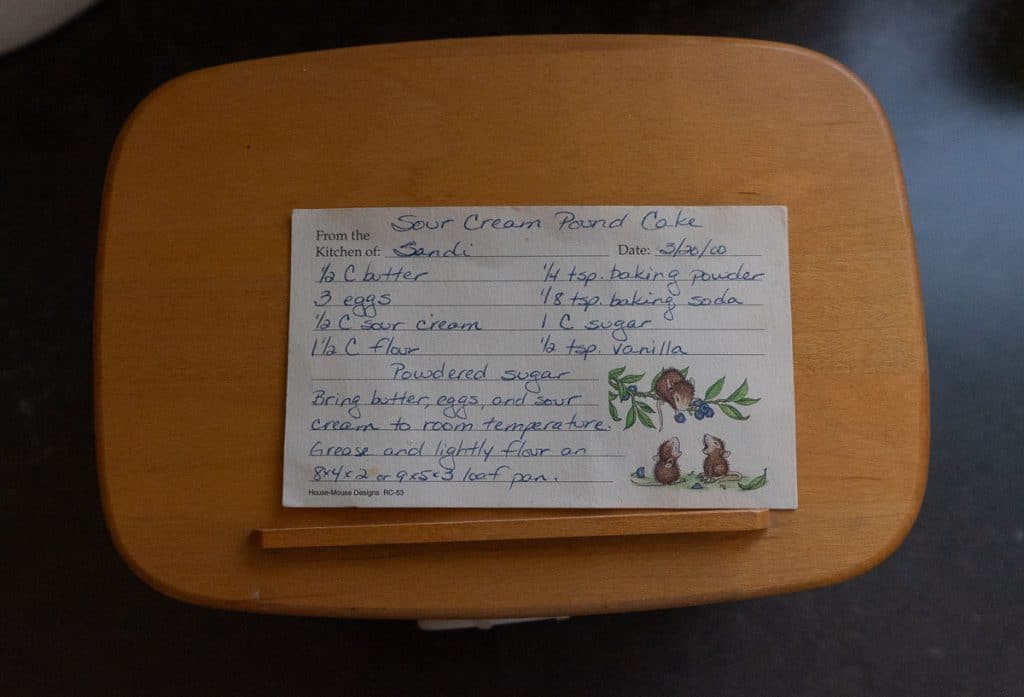 Sour Cream Pound Cake
From the
Kitchen of: Sandi Date: 3/20/00
1/2 C butter 1/4 tsp. baking powder
3 eggs 1/8 tsp. baking soda
1/2 C sour cream 1 C sugar
1 1/2 C flour 1/2 tsp. vanilla
Powdered sugar
Bring butter, eggs, and sour
cream to room temperature.
Grease and lightly flour an
8x4x2 or 9x5x3 loaf pan.
House-Mouse Designs RC-53